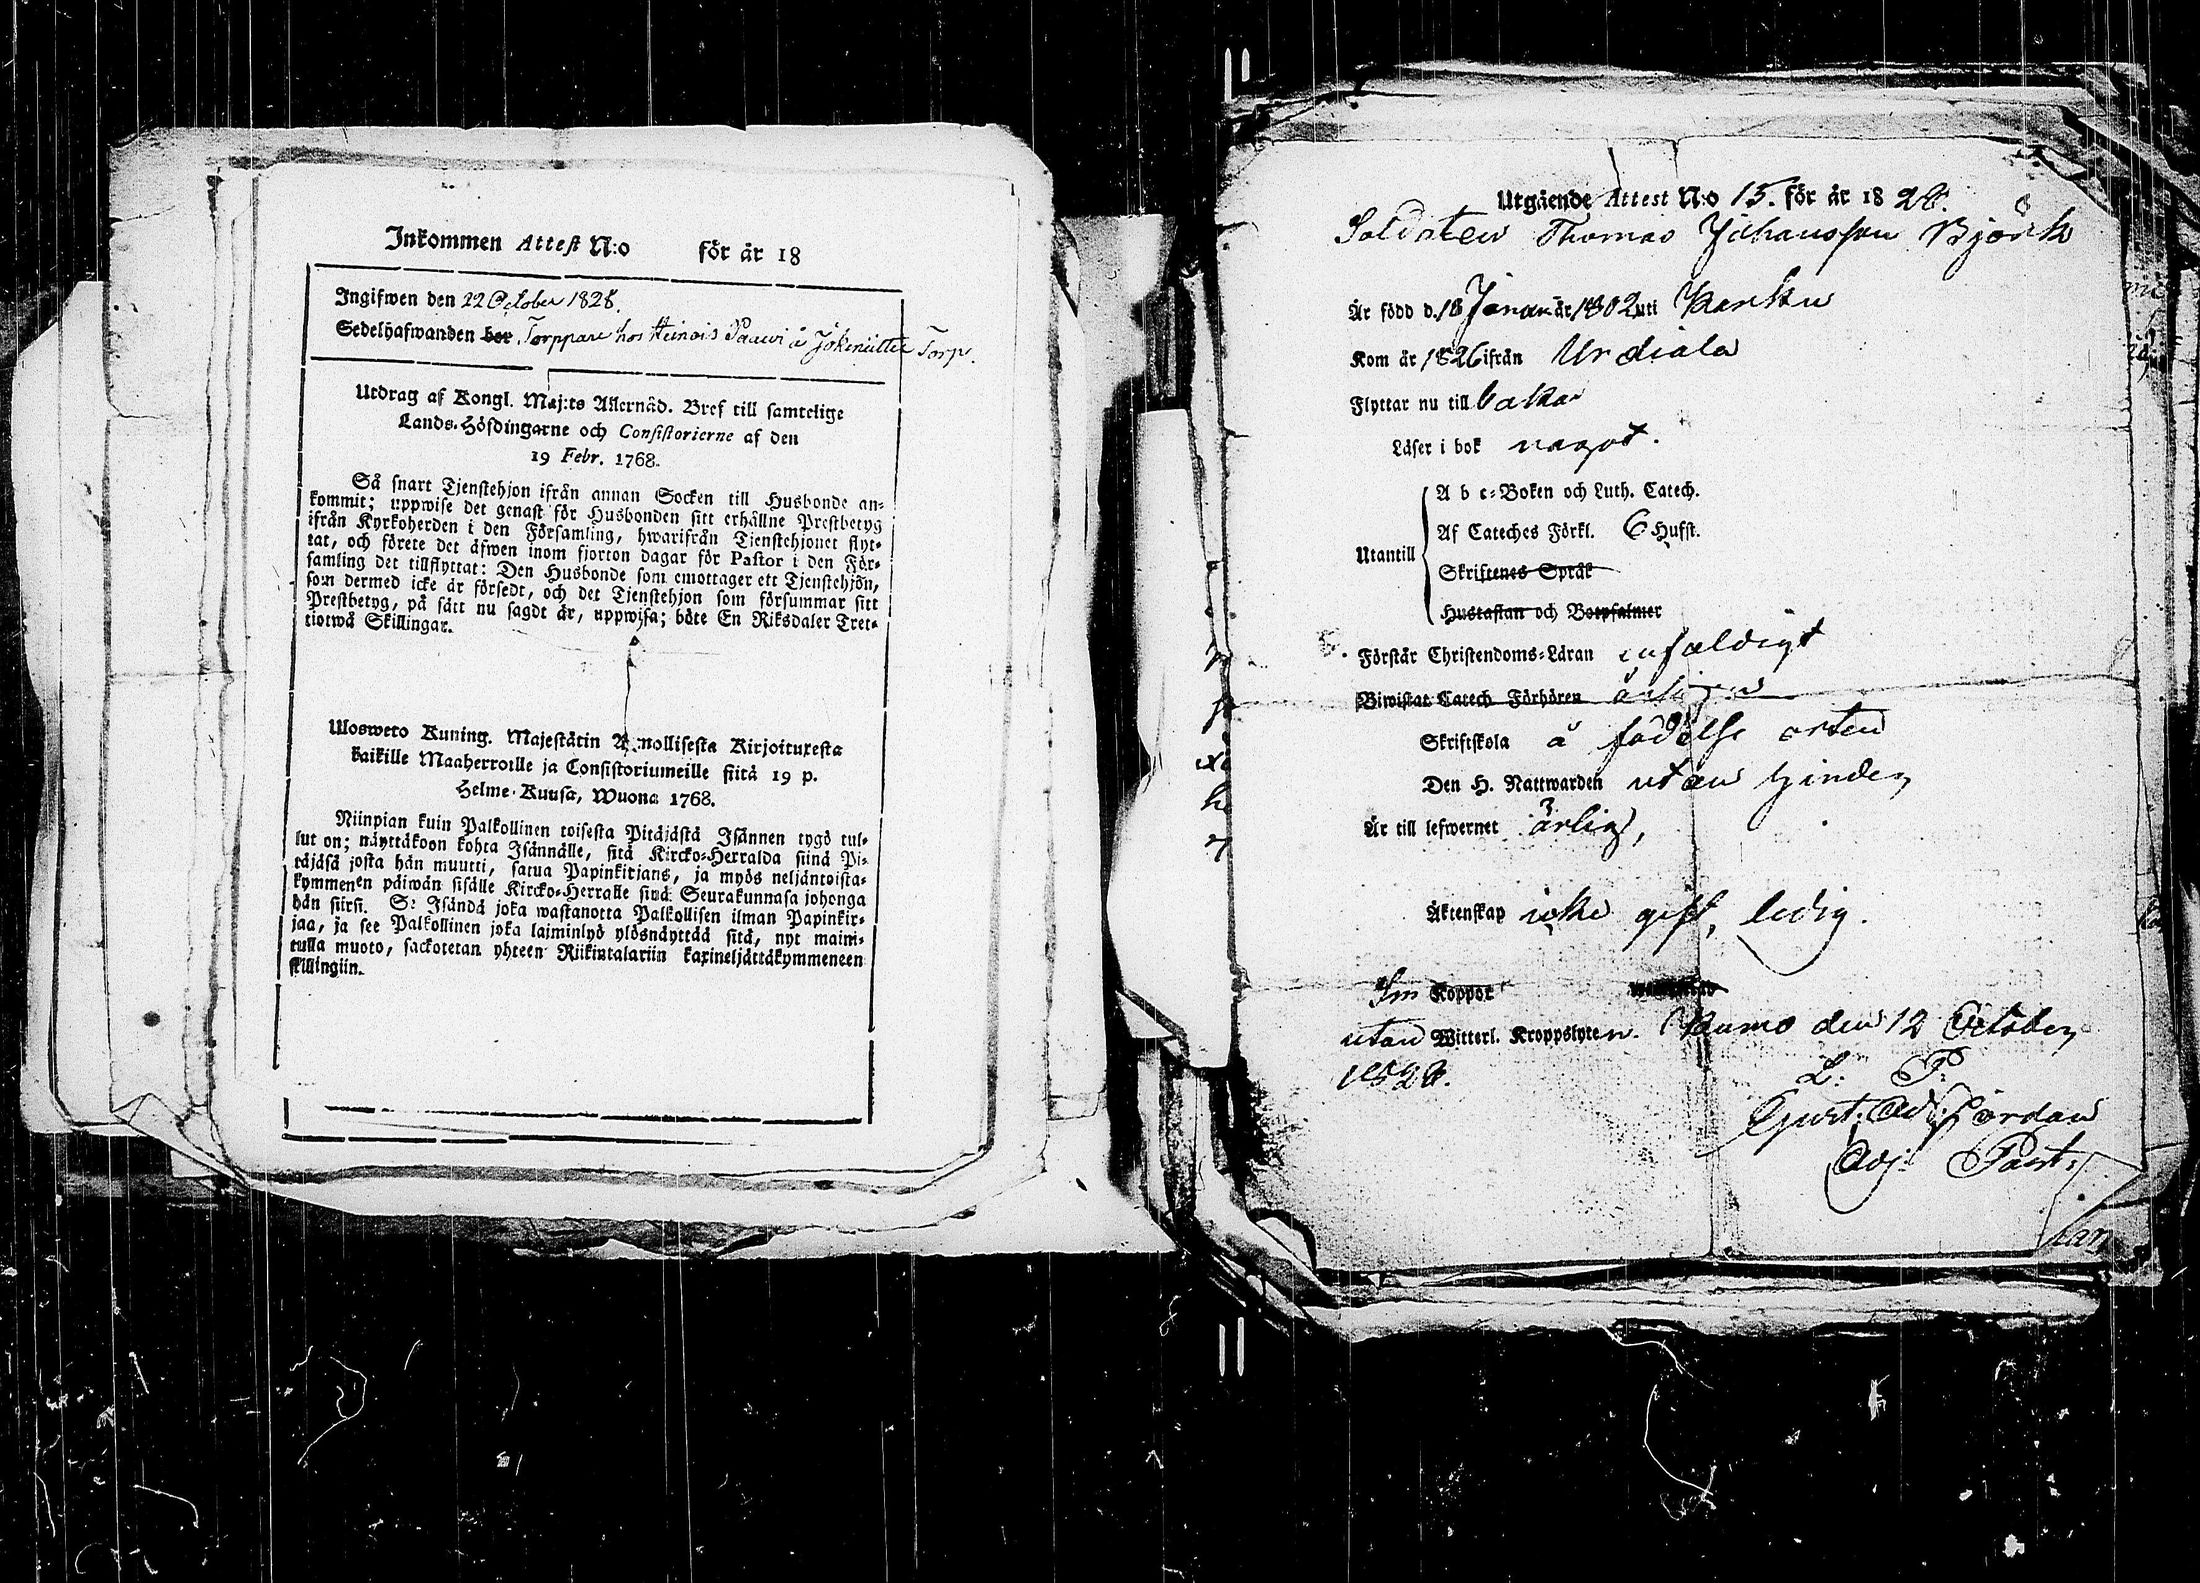 Inkommen Attest N:o för år 18
Ingifwen den 22 October 1828.
Sedelhafwanden bor Torppare hos Heinois Paawi å Torp.
Utdrag af Kongl. Maj:ts Allernåd. Bref till samtelige
Lands-Höfdingarne och Consistorierne af den
19 Febr. 1768.
Så snart Tjenstehjon ifrån annan Socken till Husbonde an-
kommit; uppwise det genast för Husbonden sitt erhållne Prestbetyg
ifrån Kyrkoherden i den Församling, hwarifrån Tienstehjonet flyt-
tat, och förete det äfwen inom fjorton dagar för Pastor i den För-
samling det tillflyttat: Den Husbonde som emottager ett Tjenstehjon,
som dermed icke är försedt, och det Tienstehjon som försummar sitt
Prestbetyg, på sätt nu sagdt är, uppwisa; böte En Riksdaler Tret-
tiotwå Skillingar.
Ulosweto Kuning. Majestätin Armollisesta Kirjoituxesta
kaikille Maaherroille ja Consistoriumeille siitä 19 p.
Helme-Kuusa, Wuona 1768.
Niinpian kuin Palkollinen toisesta Pitäjästä Isännen tygö tul-
lut on; näyttäkoon kohta Isännälle, sitä Kircko-Herralda siinä Pi-
täjäsä josta hän muutti, saatua Papinkirjans, ja myös neljäntoista-
kymmenen päiwän sisälle Kircko-Herralle siinä Seurakunnasa johonga
hän siirsi. Se Isändä joka wastanotta Palkollisen ilman Papinkir-
jaa, ja see Palkollinen joka lajminlyö ylösnäyttää sitä, nyt maini-
tulla muoto, sackotetan yhteen Riikintalariin kaxineljättäkymmeneen
skillingiin.
Utgående Attest N:o 15. för år 1828.
Soldaten Thomas Johansson Björk
Är född d. 18 Januar år 1802 uti Karku
Kom år 1826 ifrån Urdiala
Flyttar nu till baka
Läser i bok något.
A b c-Boken och Luth. Catech.
Af Cateches Förkl. 6 Hufst.
Utantill
Skriftenes Språk
Hustaflan och Botpsalmer
Förstår Christendoms-Läran enfaldigt
Biwistat Catech Förhören årligen
Skriftskola å födelse orten
Den H. Nattwarden utan hinder
Är till lefwernet ärlig,
Äktenskap icke gift, ledig.
Koppor
utan Witterl. Kroppslyten. Kumo den 12 October
1828.
L: P:
Gust: Ad: Hördan
Adj: Past: